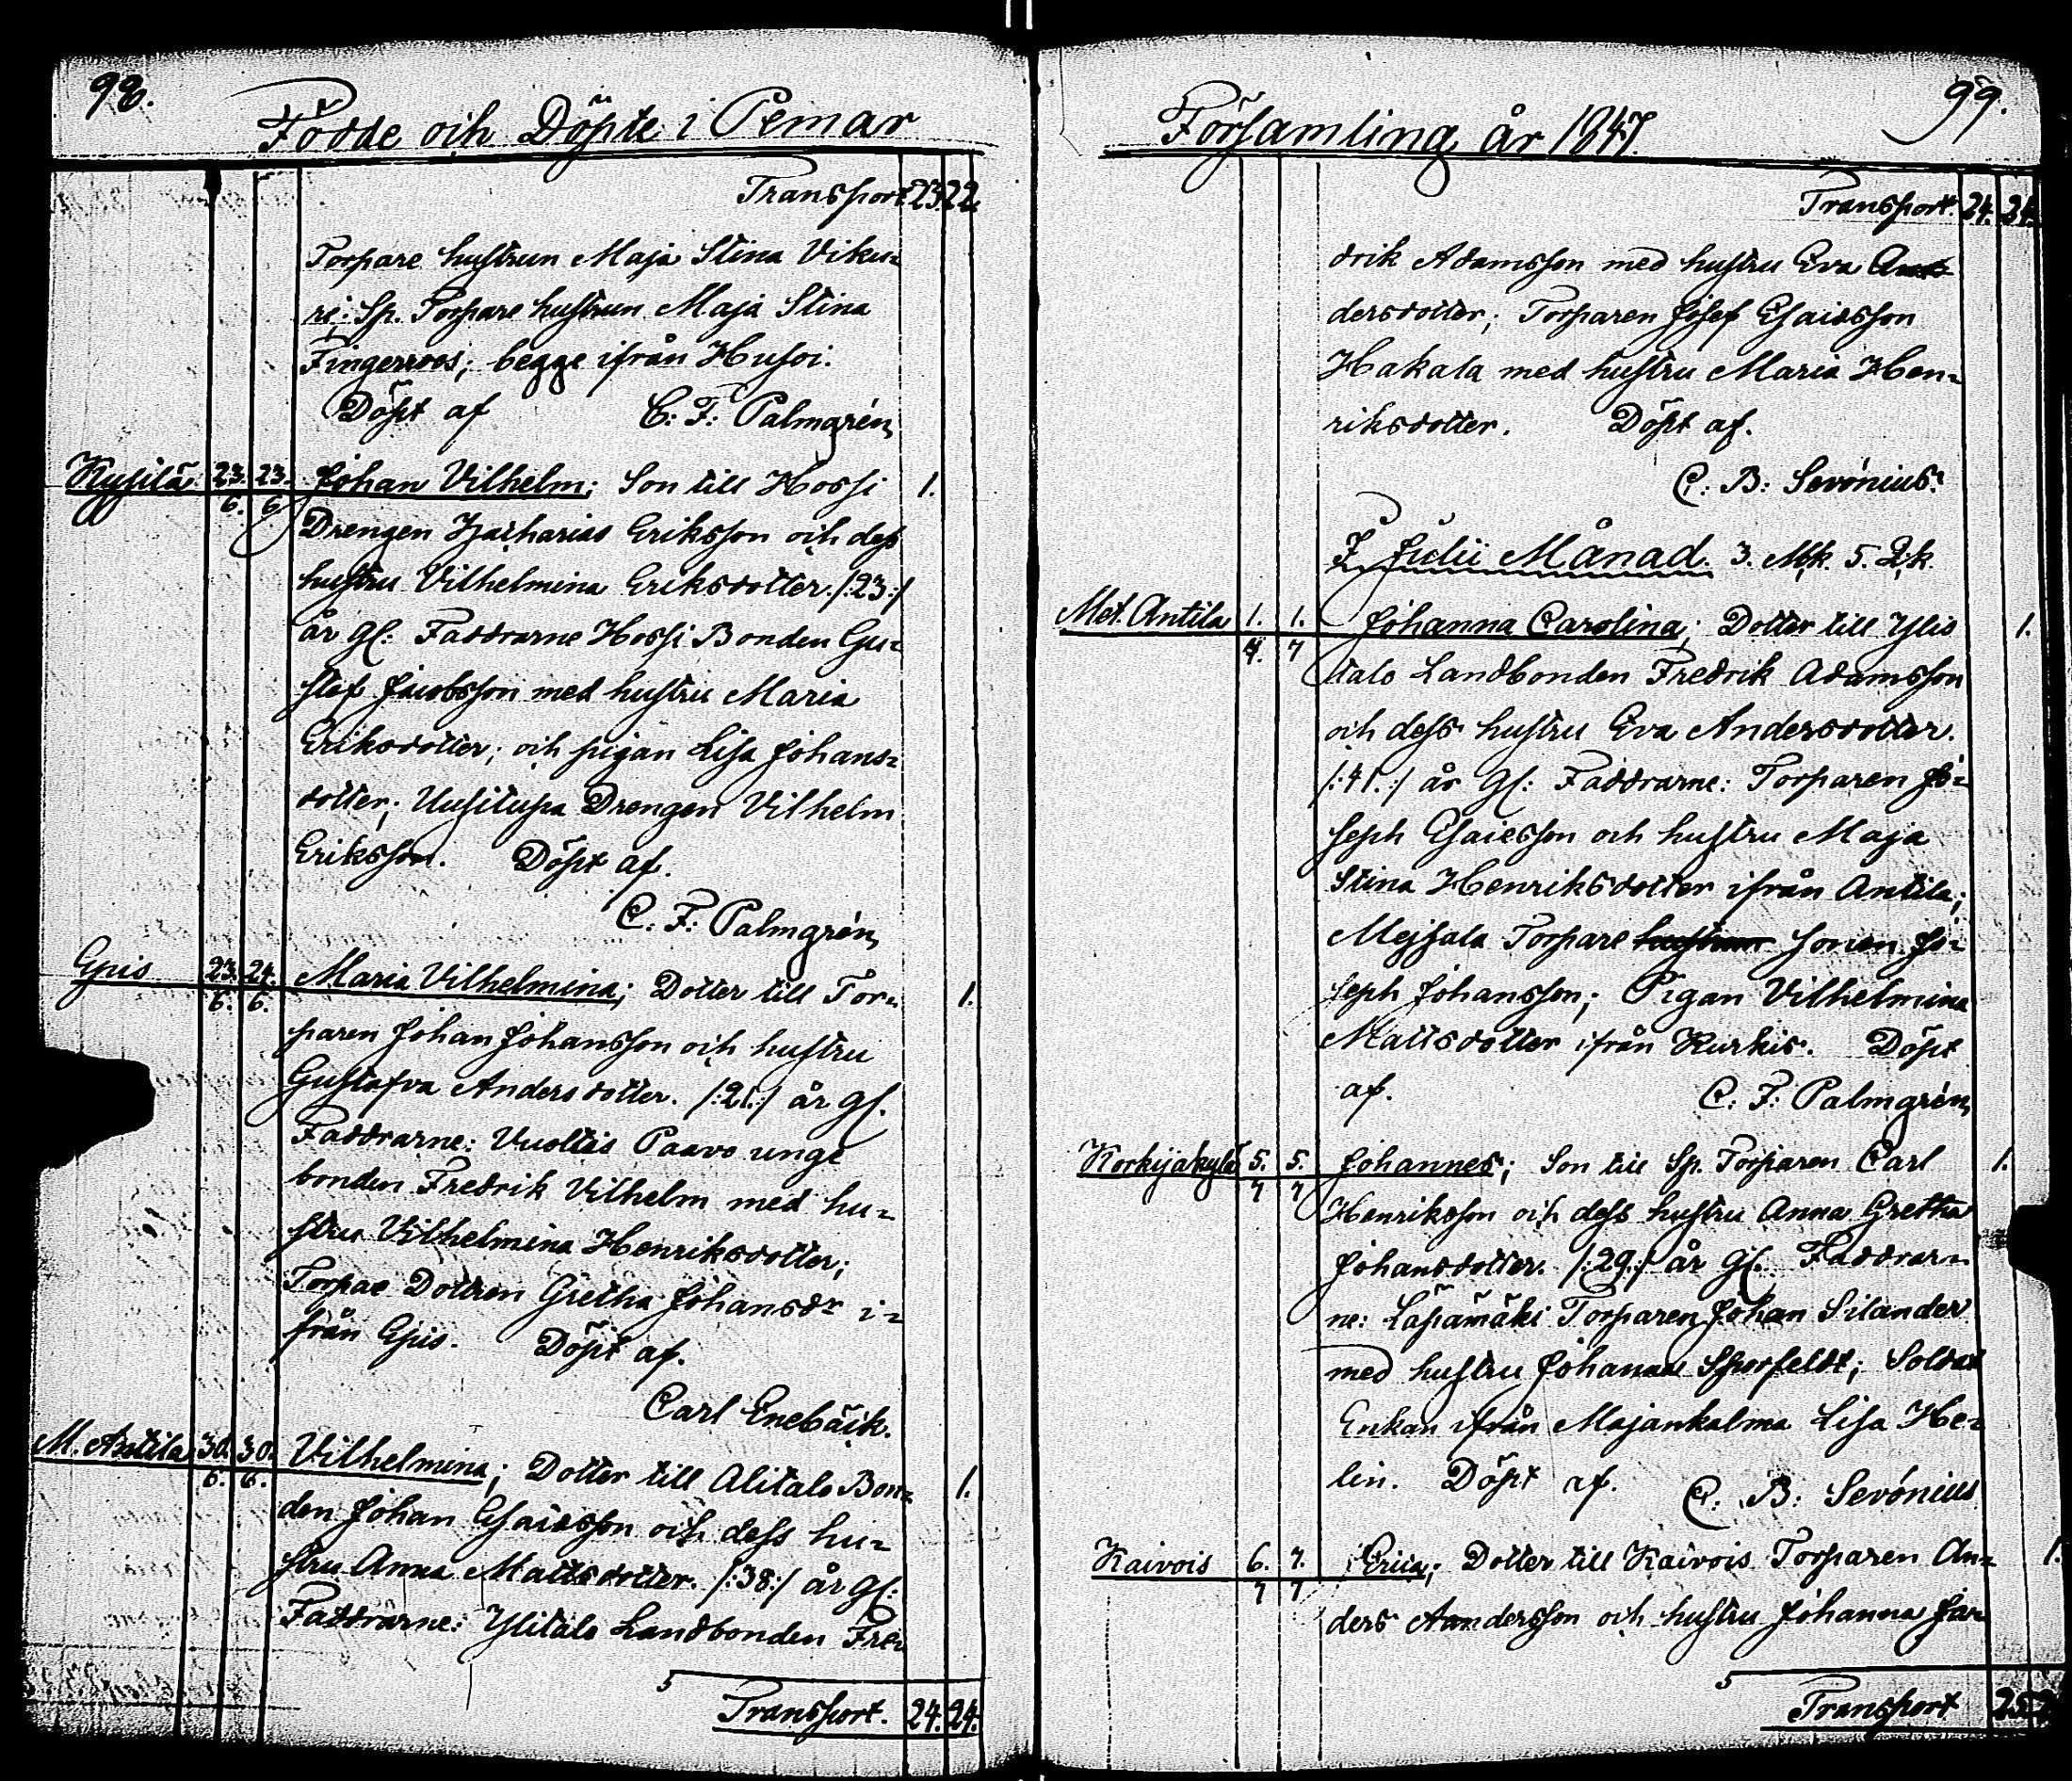 98.
Födde och Döpte i Pemar
Transport. 23. 22.
Torpare hustrun Maja Stina Viku=
ri: Sp. Torpare hustrun Maja Stina
Fingerroos; begge ifrån Husoi.
Döpt af C: F: Palmgrén
Kysilä 23. 23. Johan Vilhelm; Son till Hossi 1.
6. 6
Drengen Zacharias Eriksson och dess
hustru Vilhelmina Eriksdotter. /:23:/
år gl: Faddrarne Hossi Bonden Gu=
staf Jacobsson med hustru Maria
Eriksdotter; och pigan Lisa Johans=
dotter; Uusitupa Drengen Vilhelm
Eriksson. Döpt af.
C. F: Palmgrén
Gpis 23. 24. Maria Vilhelmina; Dotter till Tor= 1.
6. 6.
paren Johan Johansson och hustru
Gustafva Andersdotter. /:21:/ år gl.
Faddrarne: Vuoltis Paavo unge
bonden Fredrik Vilhelm med hu=
stru Vilhelmina Henriksdotter;
Torpae Dottren Gretha Johansdr i=
från Gpis. Döpt af.
Carl Enebäck.
M. Antila 30. 30. Vilhelmina; Dotter till Alitalo Bon= 1.
6. 6.
den Johan Esaiasson och dess hu=
stru Anna Mattsdotter. /:38:/ år gl:
Faddrarne: Ylitalo Landbonden Fre=
Transport. 24. 24.
99.
Församling år 1847.
Transport. 24. 24.
drik Adamsson med hustru Eva An
dersdotter; Torparen Josef Esaiasson
Hakala med hustru Maria Hen=
riksdotter. Döpt af.
C: B: Sevónius.
I Julii Månad. 3. Mk. 5. Qk.
Met. Antila 1. 1. Johanna Carolina; Dotter till Yli 1.
7. 7
talo Landbonden Fredrik Adamsson
och dess hustru Eva Andersdotter.
/:41.:/ år gl: Faddrarne: Torparen Jo=
seph Esaiesson och hustru Maja
Stina Henriksdotter ifrån Antila;
Mejsala Torpare hustrun sonen Jo=
seph Johansson; Pigan Vilhelmina
Mattsdotter ifrån Kurkis. Döpt
af. C: F: Palmgrén
Korkijakylä 5. 5. Johannes; Son till Sp. Torparen Carl 1.
7 7
Henriksson och dess hustru Anna Gretha
Johansdotter. /:29:/ år gl. Faddrar=
ne: Läpämäki Torparen Johan Silander
med hustru Johanna Sporfeldt; Soldat
Enkan ifrån Majankalma Lisa He=
lin. Döpt af. C: B: Sevónius
Kaivois 6. 7. Erica; Dotter till Kaivois Torparen An= 1.
7 7
ders Aandersson och hustru Johanna Jar
Transport 25.